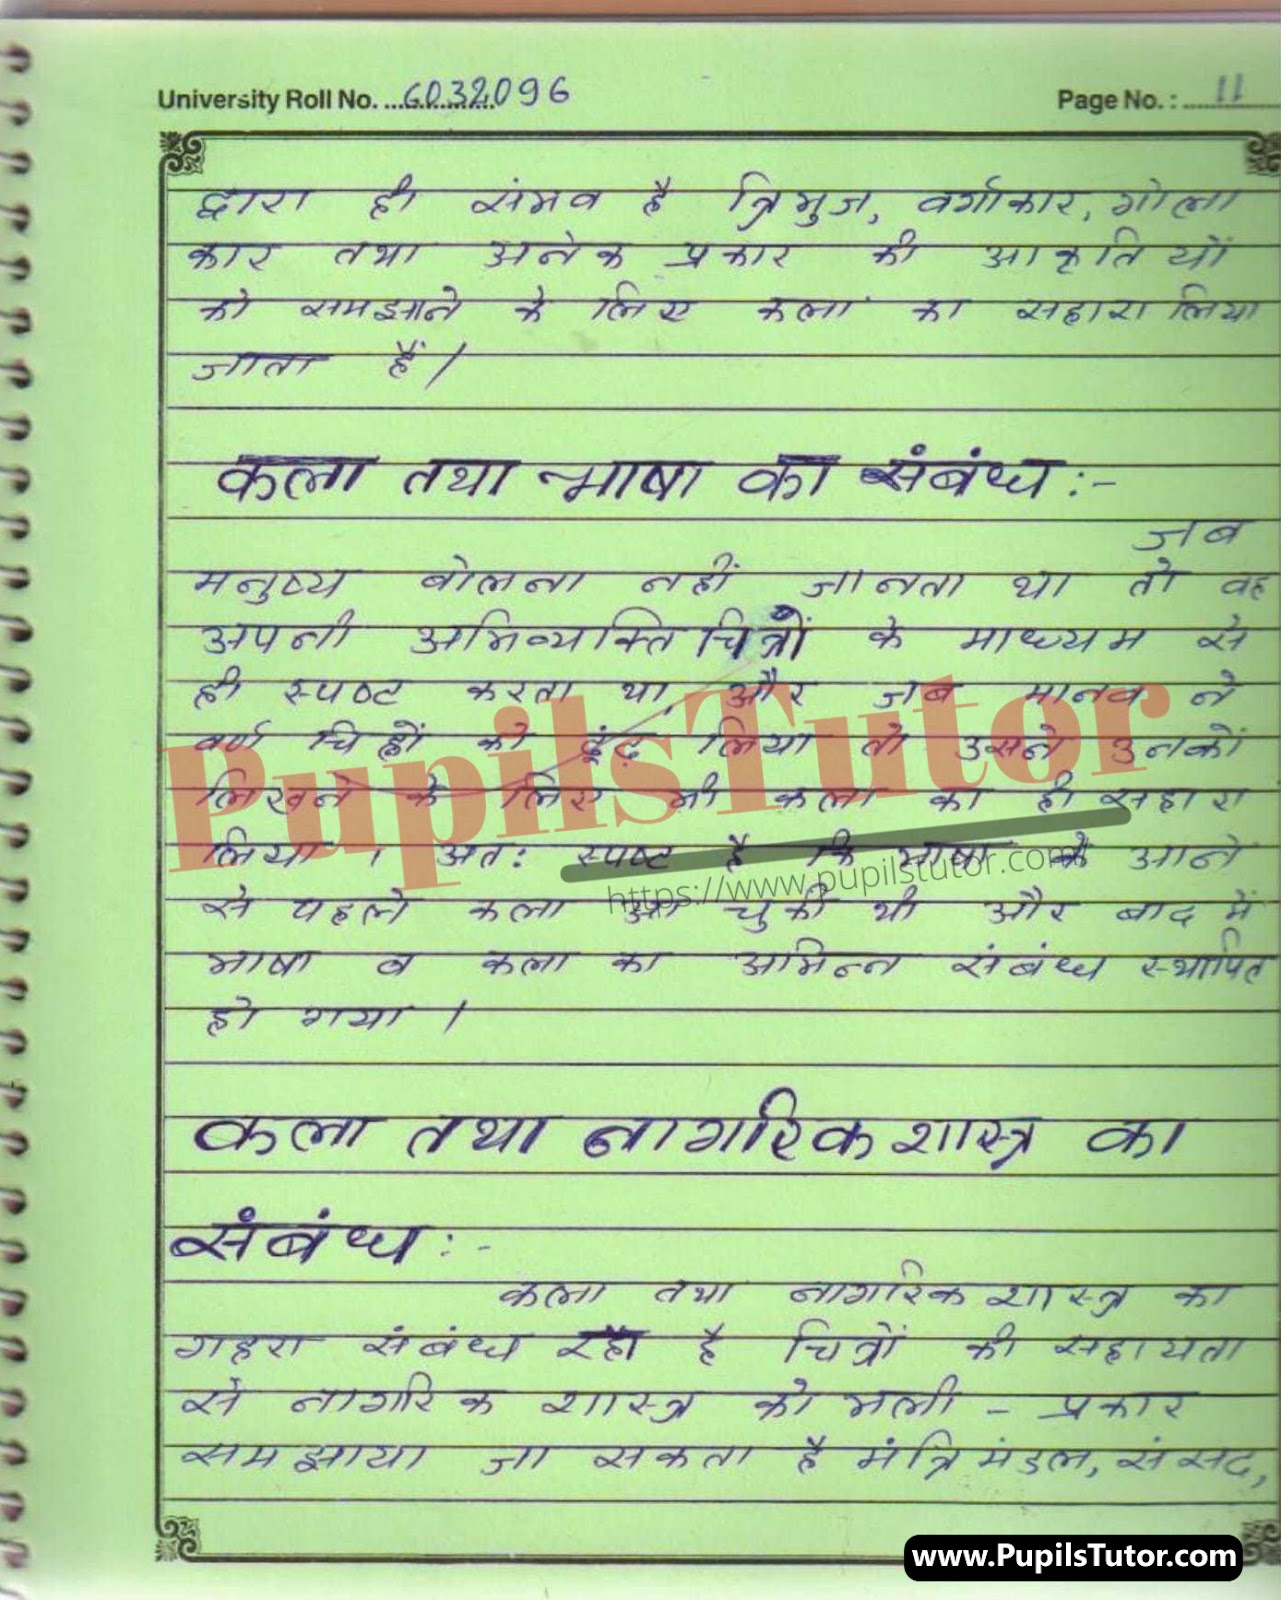 University Roll No. 6032096 Page No. : 11
द्वारा ही संभव है त्रिभुज, वर्गाकार, गोला
कार तथा अनेक प्रकार की आकृतियों
को समझाने के लिए कला का सहारा लिया
जाता हैं।
कला तथा भाषा का संबंध :-
जब
मनुष्य बोलना नहीं जानता था तो वह
अपनी अभिव्यक्ति चित्रों के माध्यम से
ही स्पष्ट करता था, और जब मानव ने
वर्ण चिह्नों को ढूंढ़ लिया तो उसने उनकों
लिखने के लिए भी कला का ही सहारा
लिया । अत: स्पष्ट है कि भाषा के आने
से पहले कला आ चुकी थी और बाद में
भाषा व कला का अभिन्न संबंध स्थापित
हो गया ।
कला तथा नागरिक शास्त्र का
संबंध :-
कला तथा नागरिक शास्त्र का
गहरा संबंध रहा है चित्रों की सहायता
से नागरिक शास्त्र को भली - प्रकार
समझाया जा सकता है मंत्रिमंडल, संसद,
PupilsTutor
https://www.pupilstutor.com
www.PupilsTutor.com